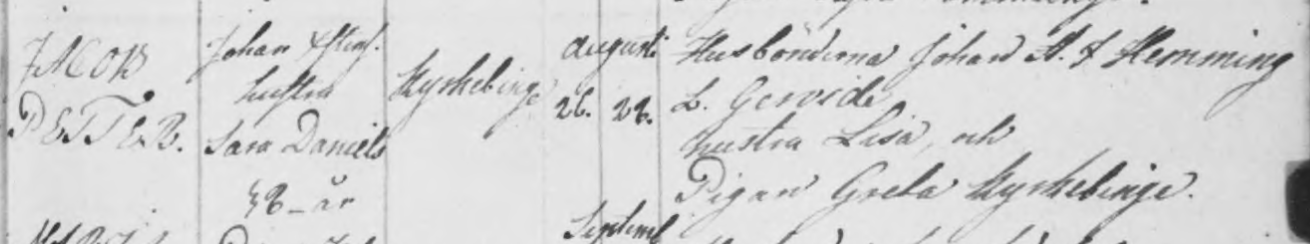 JACOB
PETTER.
Johan
hustru
Sara Daniels
38 år
Kyrkebinge
Augusti
26. 28.
Husbönderna Johan St. & Flemming
L. Gervide
hustru Lisa, och
Pigan Greta Kyrkebinge.
Septemb